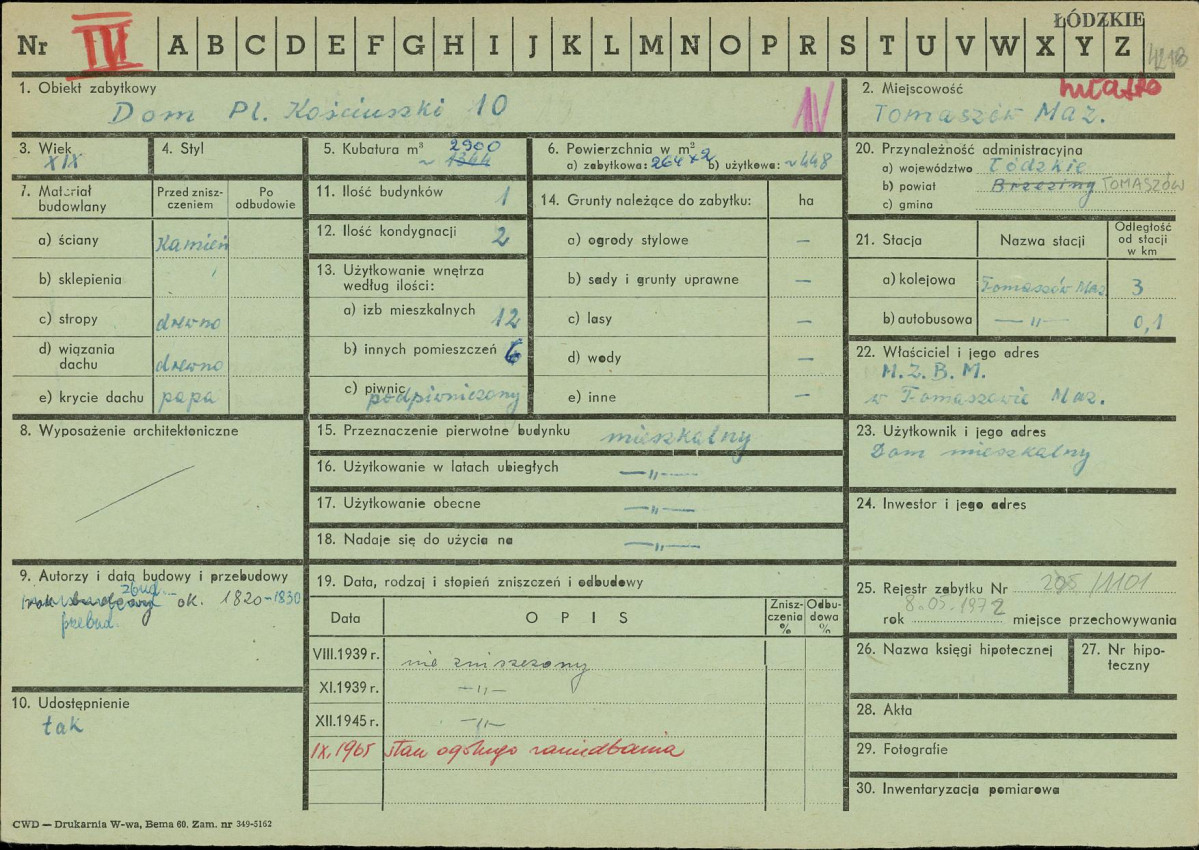 ŁÓDZKIE
Nr IV A B C D E F G H I J K L M N O P R S T U V W X Y Z
1. Obiekt zabytkowy
Dom Pl. Kościuszki 10
IV
2. Miejscowość
miasto
Tomaszów Maz.
3. Wiek
XIX
4. Styl
5. Kubatura m³ 2900
~ 1344
6. Powierzchnia w m²
a) zabytkowa: 264×2 b) użytkowa: ~448
20. Przynależność administracyjna
a) województwo Łódzkie
b) powiat Brzeziny TOMASZÓW
c) gmina
7. Materiał budowlany
Przed zniszczeniem
Po odbudowie
a) ściany Kamień
b) sklepienia
c) stropy drewno
d) wiązania dachu drewno
e) krycie dachu papa
11. Ilość budynków 1
12. Ilość kondygnacji 2
13. Użytkowanie wnętrza
według ilości:
a) izb mieszkalnych 12
b) innych pomieszczeń 6
c) piwnic podpiwniczony
14. Grunty należące do zabytku: ha
a) ogrody stylowe –
b) sady i grunty uprawne –
c) lasy –
d) wody –
e) inne –
21. Stacja
Nazwa stacji
Odległość od stacji w km
a) kolejowa Tomaszów Maz. 3
b) autobusowa —„— 0,1
22. Właściciel i jego adres
M. Z. B. M.
w Tomaszowie Maz.
8. Wyposażenie architektoniczne
15. Przeznaczenie pierwotne budynku mieszkalny
16. Użytkowanie w latach ubiegłych —„—
17. Użytkowanie obecne —„—
18. Nadaje się do użycia na —„—
23. Użytkownik i jego adres
Dom mieszkalny
24. Inwestor i jego adres
9. Autorzy i data budowy i przebudowy
zbud.
rok budowy ok. 1820-1830
przebud.
10. Udostępnienie
tak
19. Data, rodzaj i stopień zniszczeń i odbudowy
Data
O P I S
Zniszczenia %
Odbudowa %
VIII.1939 r. nie zniszczony
XI.1939 r. —„—
XII.1945 r. —„—
IX.1965 stan ogólnego zaniedbania
25. Rejestr zabytku Nr 295/1101
8.05.1972
rok miejsce przechowywania
26. Nazwa księgi hipotecznej
27. Nr hipoteczny
28. Akta
29. Fotografie
30. Inwentaryzacja pomiarowa
CWD — Drukarnia W-wa, Bema 60. Zam. nr 349-5162